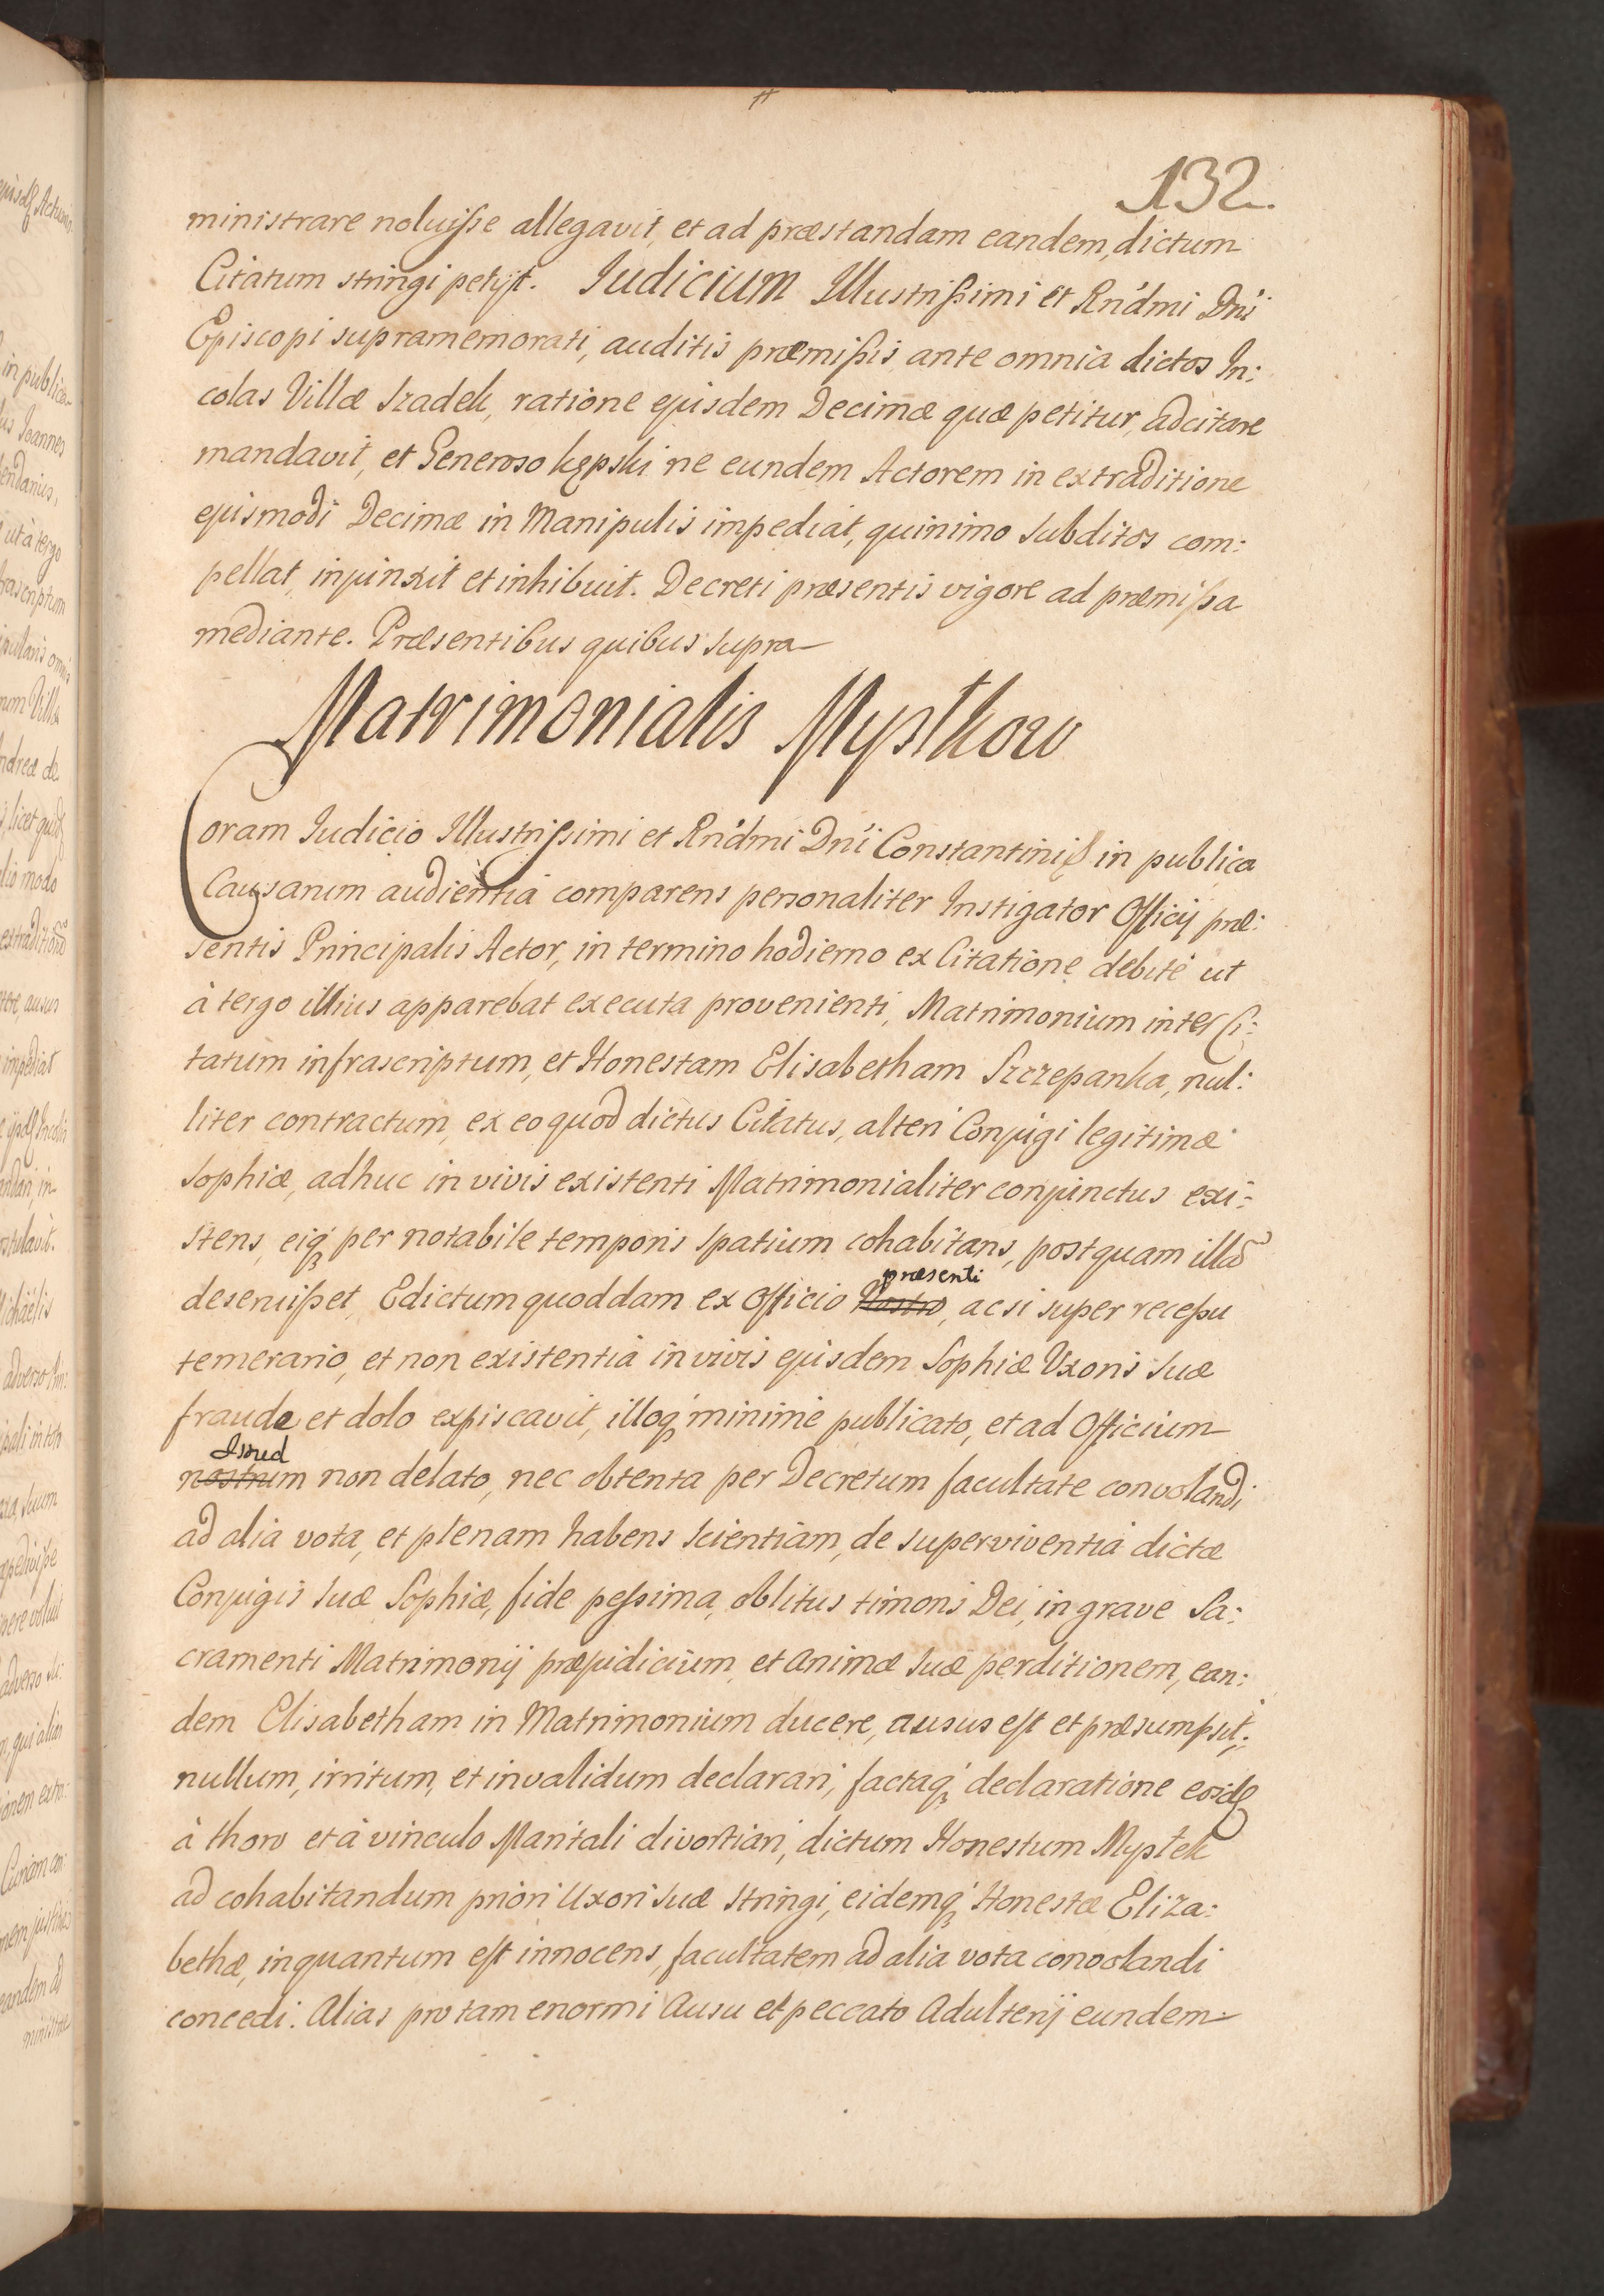 132.
ministrare noluisse allegavit, et ad præstandam eandem, dictum
Citatum stringi petijt. Iudicium Illustrissimi et Rndmi Dni
Episcopi supramemorati, auditis præmissis, ante omnia dictos In:
colas Villæ Sradek, ratione ejusdem Decimæ quæ petitur, adcitare
mandavit, et Generoso Kępski ne eundem Actorem in extraditione
ejusmodi Decimæ in Manipulis impediat, quinimo Subditos com:
pellat, injunxit et inhibuit. Decreti præsentis vigore ad præmissa
mediante. Præsentibus quibus supra
Matrimonialis Mystkow
Coram Iudicio Illustrissimi et Rndmi Dni Constantini in publica
Causarum audientiâ comparens personaliter Instigator Officij præ:
sentis Principalis Actor, in termino hodierno ex Citatione debitè ut
à tergo illius apparebat executa provenienti, Matrimonium inter Ci:
tatum infrascriptum, et Honestam Elisabetham Szczepanka, nul:
liter contractum, ex eo quod dictus Citatus, alteri Conjugi legitimæ
Sophiæ, adhuc in vivis existenti Matrimonialiter conjunctus exi:
stens, eiq; per notabile temporis spatium cohabitans, postquam illã
deseruisset, Edictum quoddam ex Officio præsenti Nostro, ac si super recessu
temerario, et non existentiâ in vivis ejusdem Sophiæ Uxoris suæ
fraude et dolo expiscavit, illoq; minimè publicato, et ad Officium
Istud nostrum non delato, nec obtenta per Decretum facultate convolandi
ad alia vota, et plenam habens scientiam, de superviventiâ dictæ
Conjugis suæ Sophiæ, fide pessima, oblitus timoris Dei, in grave Sa:
cramenti Matrimonij præjudicium, et animæ suæ perditionem, ean:
dem Elisabetham in Matrimonium ducere, ausus est et præsumpsit;
nullum, irritum, et invalidum declarari, factaq; declaratione eosdẽ
à thoro et à vinculo Maritali divortiari, dictum Honestum Mystek
ad cohabitandum priori Uxori suæ stringi, eidemq; Honestæ Eliza:
bethæ, inquantum est innocens, facultatem ad alia vota convolandi
concedi. Alias pro tam enormi Ausu et peccato Adulterij eundem